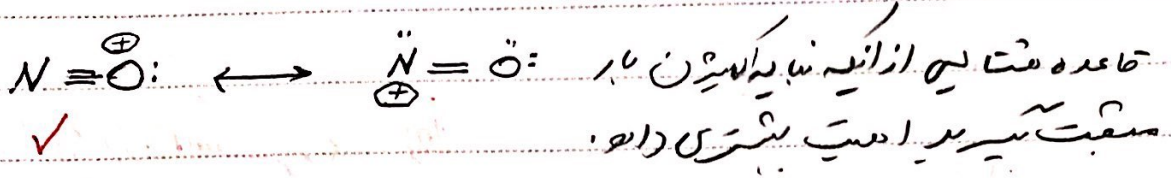 N≡O⊕: ⟷ N̈⊕=Ö: قاعده هشتایی از اینکه نباید اکسیژن بار
مثبت بگیرد اهمیت بیشتری دارد.
✓